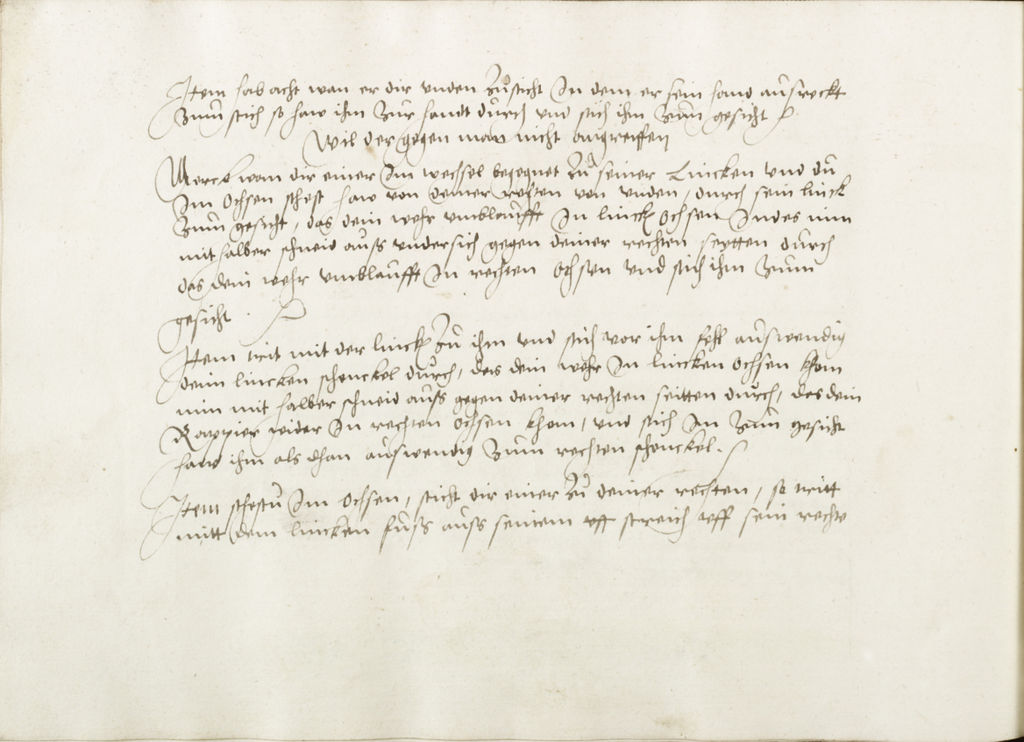 Item hab acht wan er dir unden zusticht In dem er sein hand ausreckt
zum stich so haw ihm zur handt durch und stich ihm zum gesicht
Wil der gegen man nicht angreiffen
Merck wan dir einer Im wechsel begegnet zu seiner Lincken und du
Im Ochsen stehst haw von deiner rechten von unden, durch sein linck
zum gesicht, das dein wehr umblaufft In linck ochsen Indes nim
mit halber schneid auss undersich gegen deiner rechten seytten durch
das dein wehr umblaufft In rechten Ochsen und stich ihm zum
gesicht.
Item trit mit der linck zu ihm und stich vor ihm fehl auswendig
deim lincken schenckel durch, das dein wehr In lincken Ochsen khom
nim mit halber schneid auss gegen deiner rechten seitten durch, das dein
Rappier wider In rechten ochsen khom, und stich In zum gesicht
haw ihm als dhan auswendig zum rechten schenckel.
Item stehstu Im Ochsen, sticht dir einer zu deiner rechten, so tritt
mitt dem lincken fuss auss seinem uff streich uff sein recht